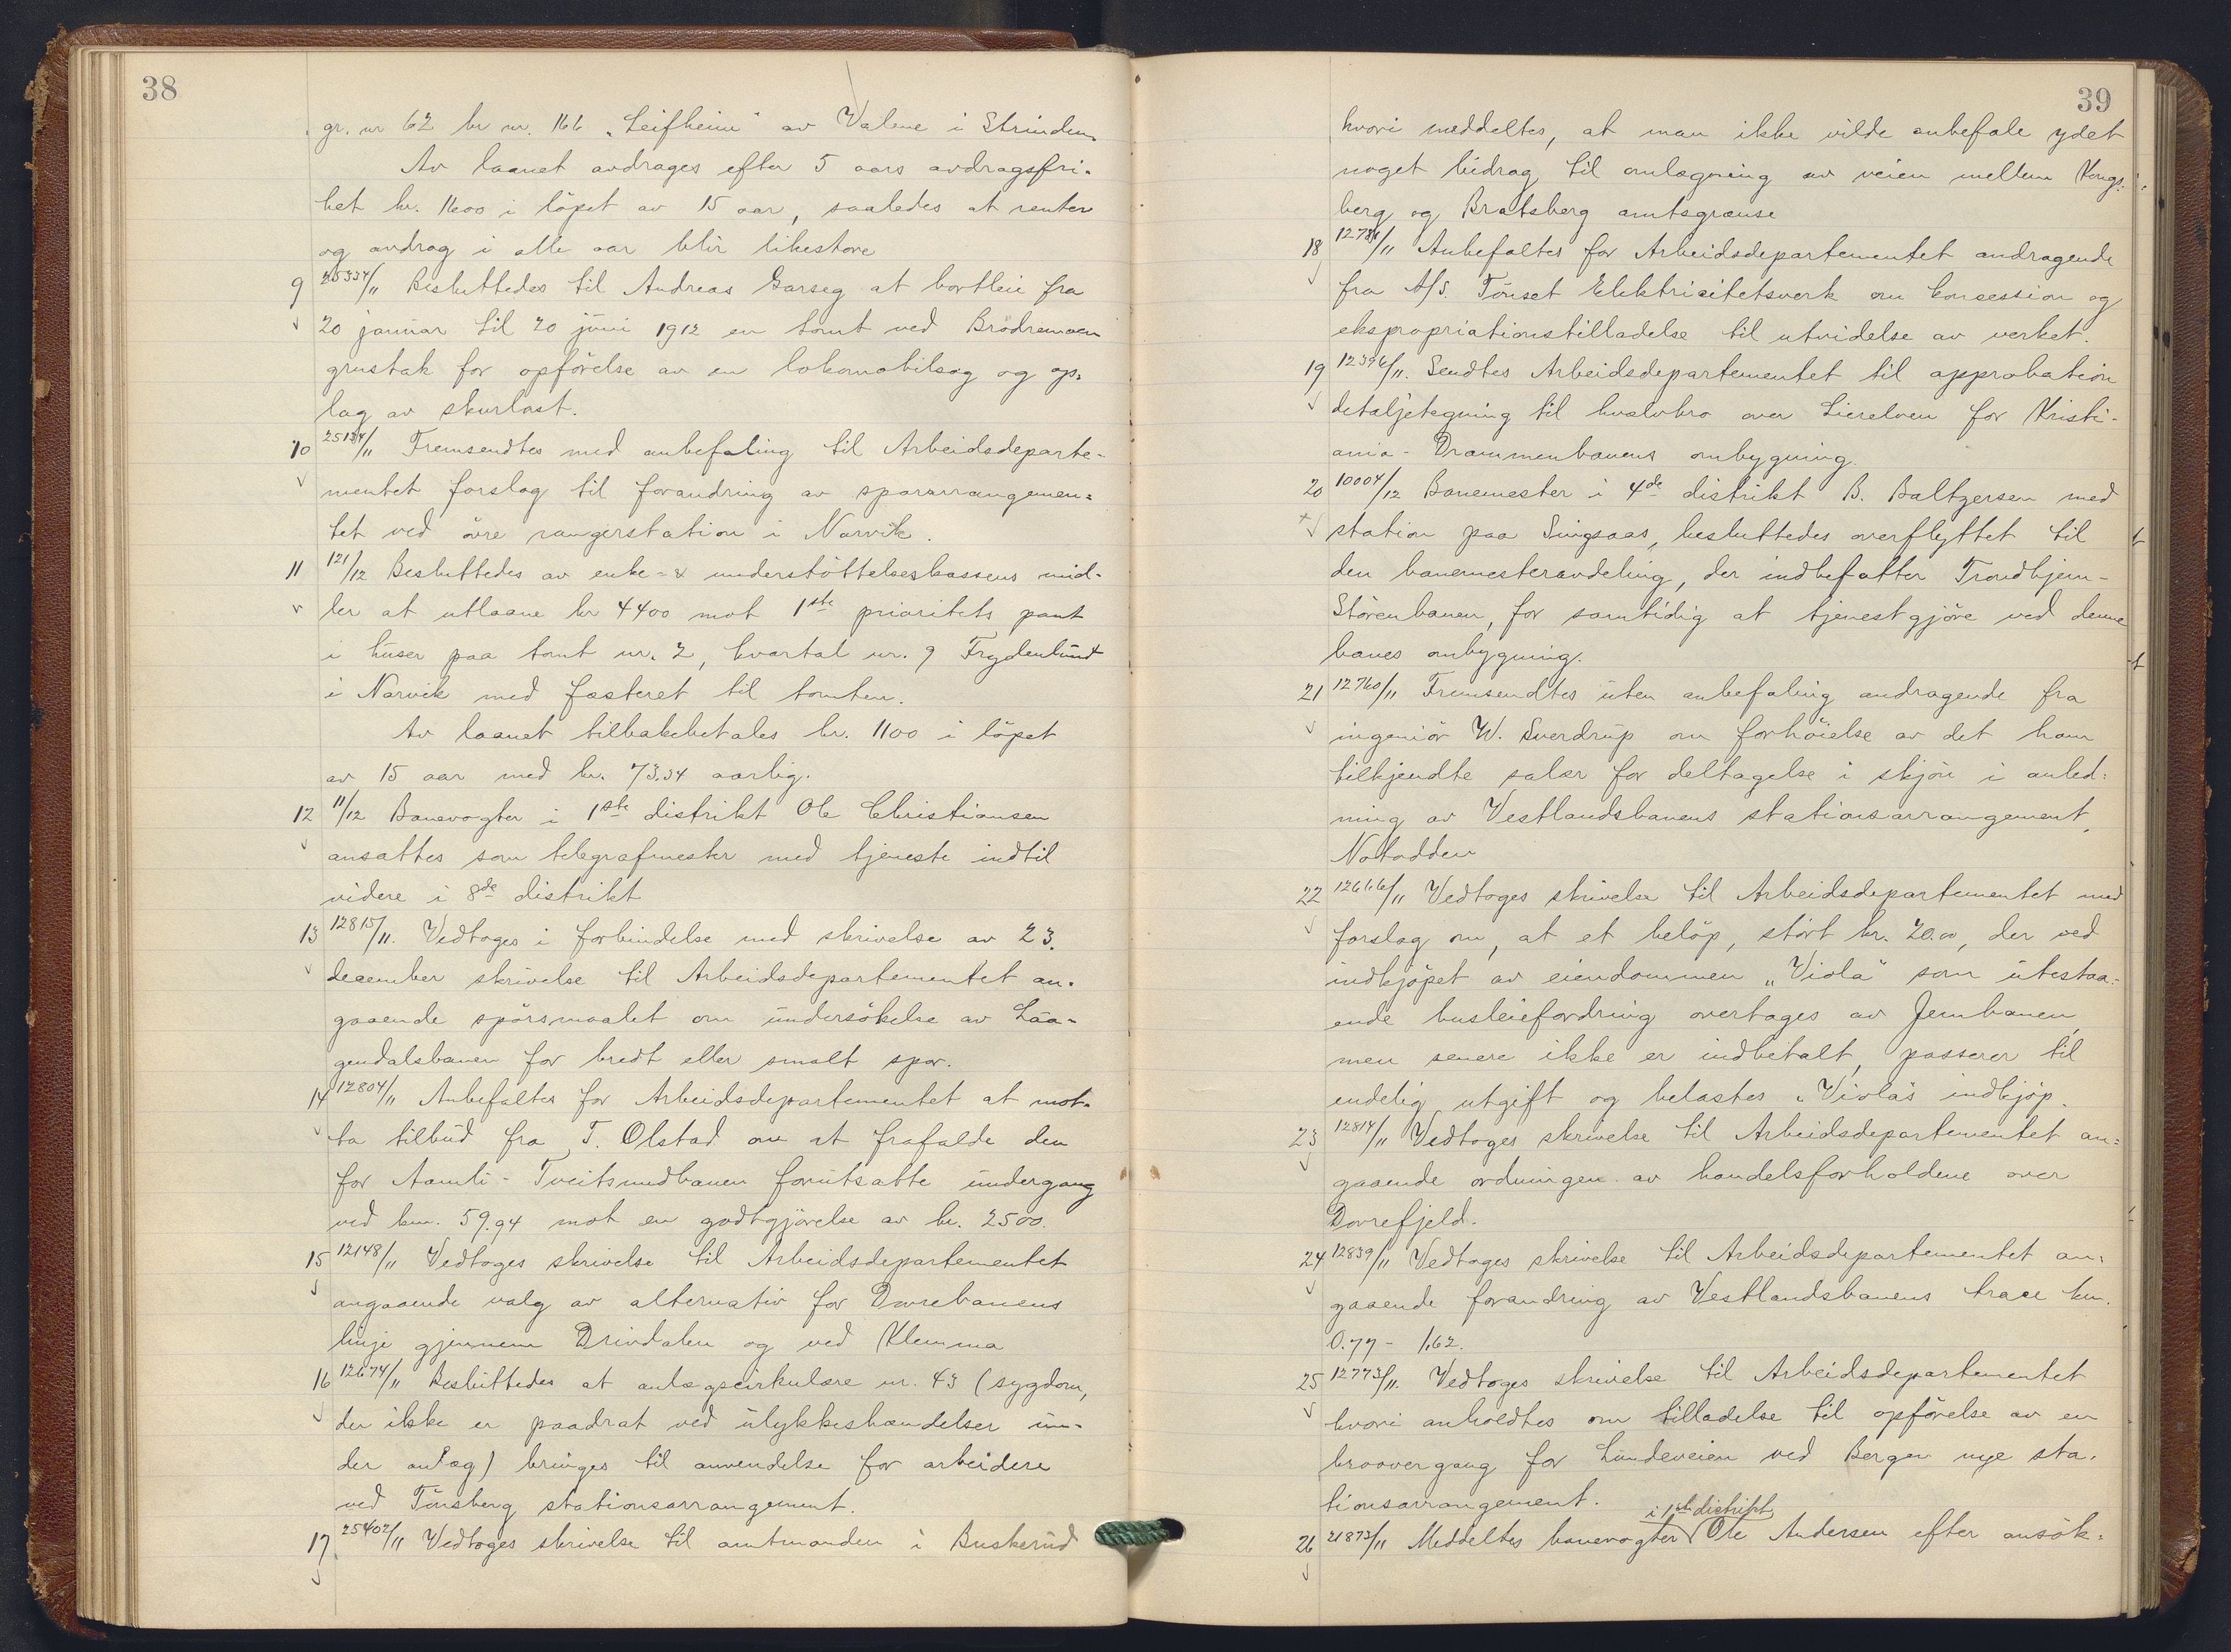 38
gr. nr 62 br nr. 166 „Leifheim" av Valene i Strinden.
Av laanet avdrages efter 5 aars avdragsfri-
het kr. 1600 i löpet av 15 aar, saaledes at renter
og avdrag i alle aar blir likestore
9 25334/11 Besluttedes til Andreas Garseg at bortleie fra
20 januar til 20 juni 1912 en tomt ved Brödremoen
grustak for opförelse av en lokomobilsag og op-
lag av skurlast.
10 25134/11 Fremsendtes med anbefaling til Arbeidsdeparte-
mentet forslag til forandring av sporarrangemen-
tet ved övre rangerstation i Narvik.
11 121/12 Besluttedes av enke- & understöttelseskassens mid-
ler at utlaane kr 4400 mot 1ste prioritets pant
i huser paa tomt nr. 2, kvartal nr. 9 Frydenlund
i Narvik med fæsteret til tomten.
Av laanet tilbakebetales kr. 1100 i löpet
av 15 aar med kr. 73.34 aarlig.
12 11/12 Banevogter i 1ste distrikt Ole Christiansen
ansattes som telegrafmester med tjeneste indtil
videre i 8de distrikt
13 12815/11. Vedtoges i forbindelse med skrivelse av 23.
december skrivelse til Arbeidsdepartementet an-
gaaende spörsmaalet om undersökelse av Laa-
gendalsbanen for bredt eller smalt spor.
14 12804/11 Anbefaltes for Arbeidsdepartementet at mot-
ta tilbud fra T. Olstad om at frafalde den
for Aamli-Tveitsundbanen forutsatte undergang
ved km. 59.94 mot en godtgjörelse av kr. 2500.
15 12148/11 Vedtoges skrivelse til Arbeidsdepartementet
angaaende valg av alternativ for Dovrebanens
linje gjennem Drivdalen og ved Klemma
16 12674/11 Besluttedes at anlægscirkulære nr. 43 (sygdom,
der ikke er paadrat ved ulykkeshændelser un-
der anlæg) bringes til anvendelse for arbeidere
ved Tönsberg stationsarrangement.
17 25402/11 Vedtoges skrivelse til amtmanden i Buskerud
39
hvori meddeltes, at man ikke vilde anbefale ydet
noget bidrag til omlægning av veien mellem Kongs-
berg og Bratsberg amtsgrænse
18 12781/11 Anbefaltes for Arbeidsdepartementet andragende
fra A/S. Tönset Elektricitetsverk om concession og
ekspropriationstilladelse til utvidelse av verket.
19 12396/11. Sendtes Arbeidsdepartementet til approbation
detaljetegning til hvalvbro over Lierelven for Kristi-
ania-Drammenbanens ombygning.
20 10004/12 Banemester i 4de distrikt B. Baltzersen med
station paa Singsaas, besluttedes overflyttet til
den banemesteravdeling, der indbefatter Trondhjem-
Störenbanen, for samtidig at tjenestgjöre ved denne
banes ombygning.
21 12760/11 Fremsendtes uten anbefaling andragende fra
ingeniör W. Sverdrup om forhöielse av det ham
tilkjendte salær for deltagelse i skjön i anled-
ning av Vestlandsbanens stationsarrangement,
Notodden
22 12666/11 Vedtoges skrivelse til Arbeidsdepartementet med
forslag om, at et belöp, stort kr. 20.00, der ved
indkjöpet av eiendommen „Viola" som utestaa-
ende husleiefordring overtages av Jernbanen,
men senere ikke er indbetalt, passerer til
endelig utgift og belastes „Viola's indkjöp.
23 12814/11 Vedtoges skrivelse til Arbeidsdepartementet an-
gaaende ordningen av handelsforholdene over
Dovrefjeld.
24 12839/11 Vedtoges skrivelse til Arbeidsdepartementet an-
gaaende forandring av Vestlandsbanens trace km.
0.77 - 1.62.
25 12773/11. Vedtoges skrivelse til Arbeidsdepartementet
hvori anholdtes om tilladelse til opförelse av en
broovergang for Lundeveien ved Bergen nye sta-
tionsarrangement.
i 1ste distrikt
26 21873/11 Meddeltes banevogter Ole Andersen efter ansök-